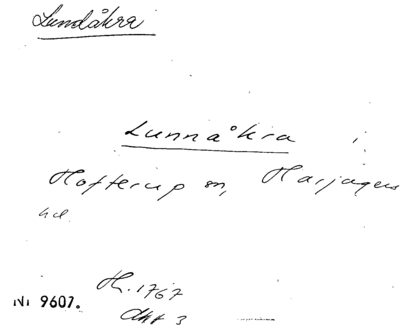 Lundåkra
Lunnåkra i
Hofterup sn, Harjagers
hd.
H. 1767
Akt 3
Nr 9607.